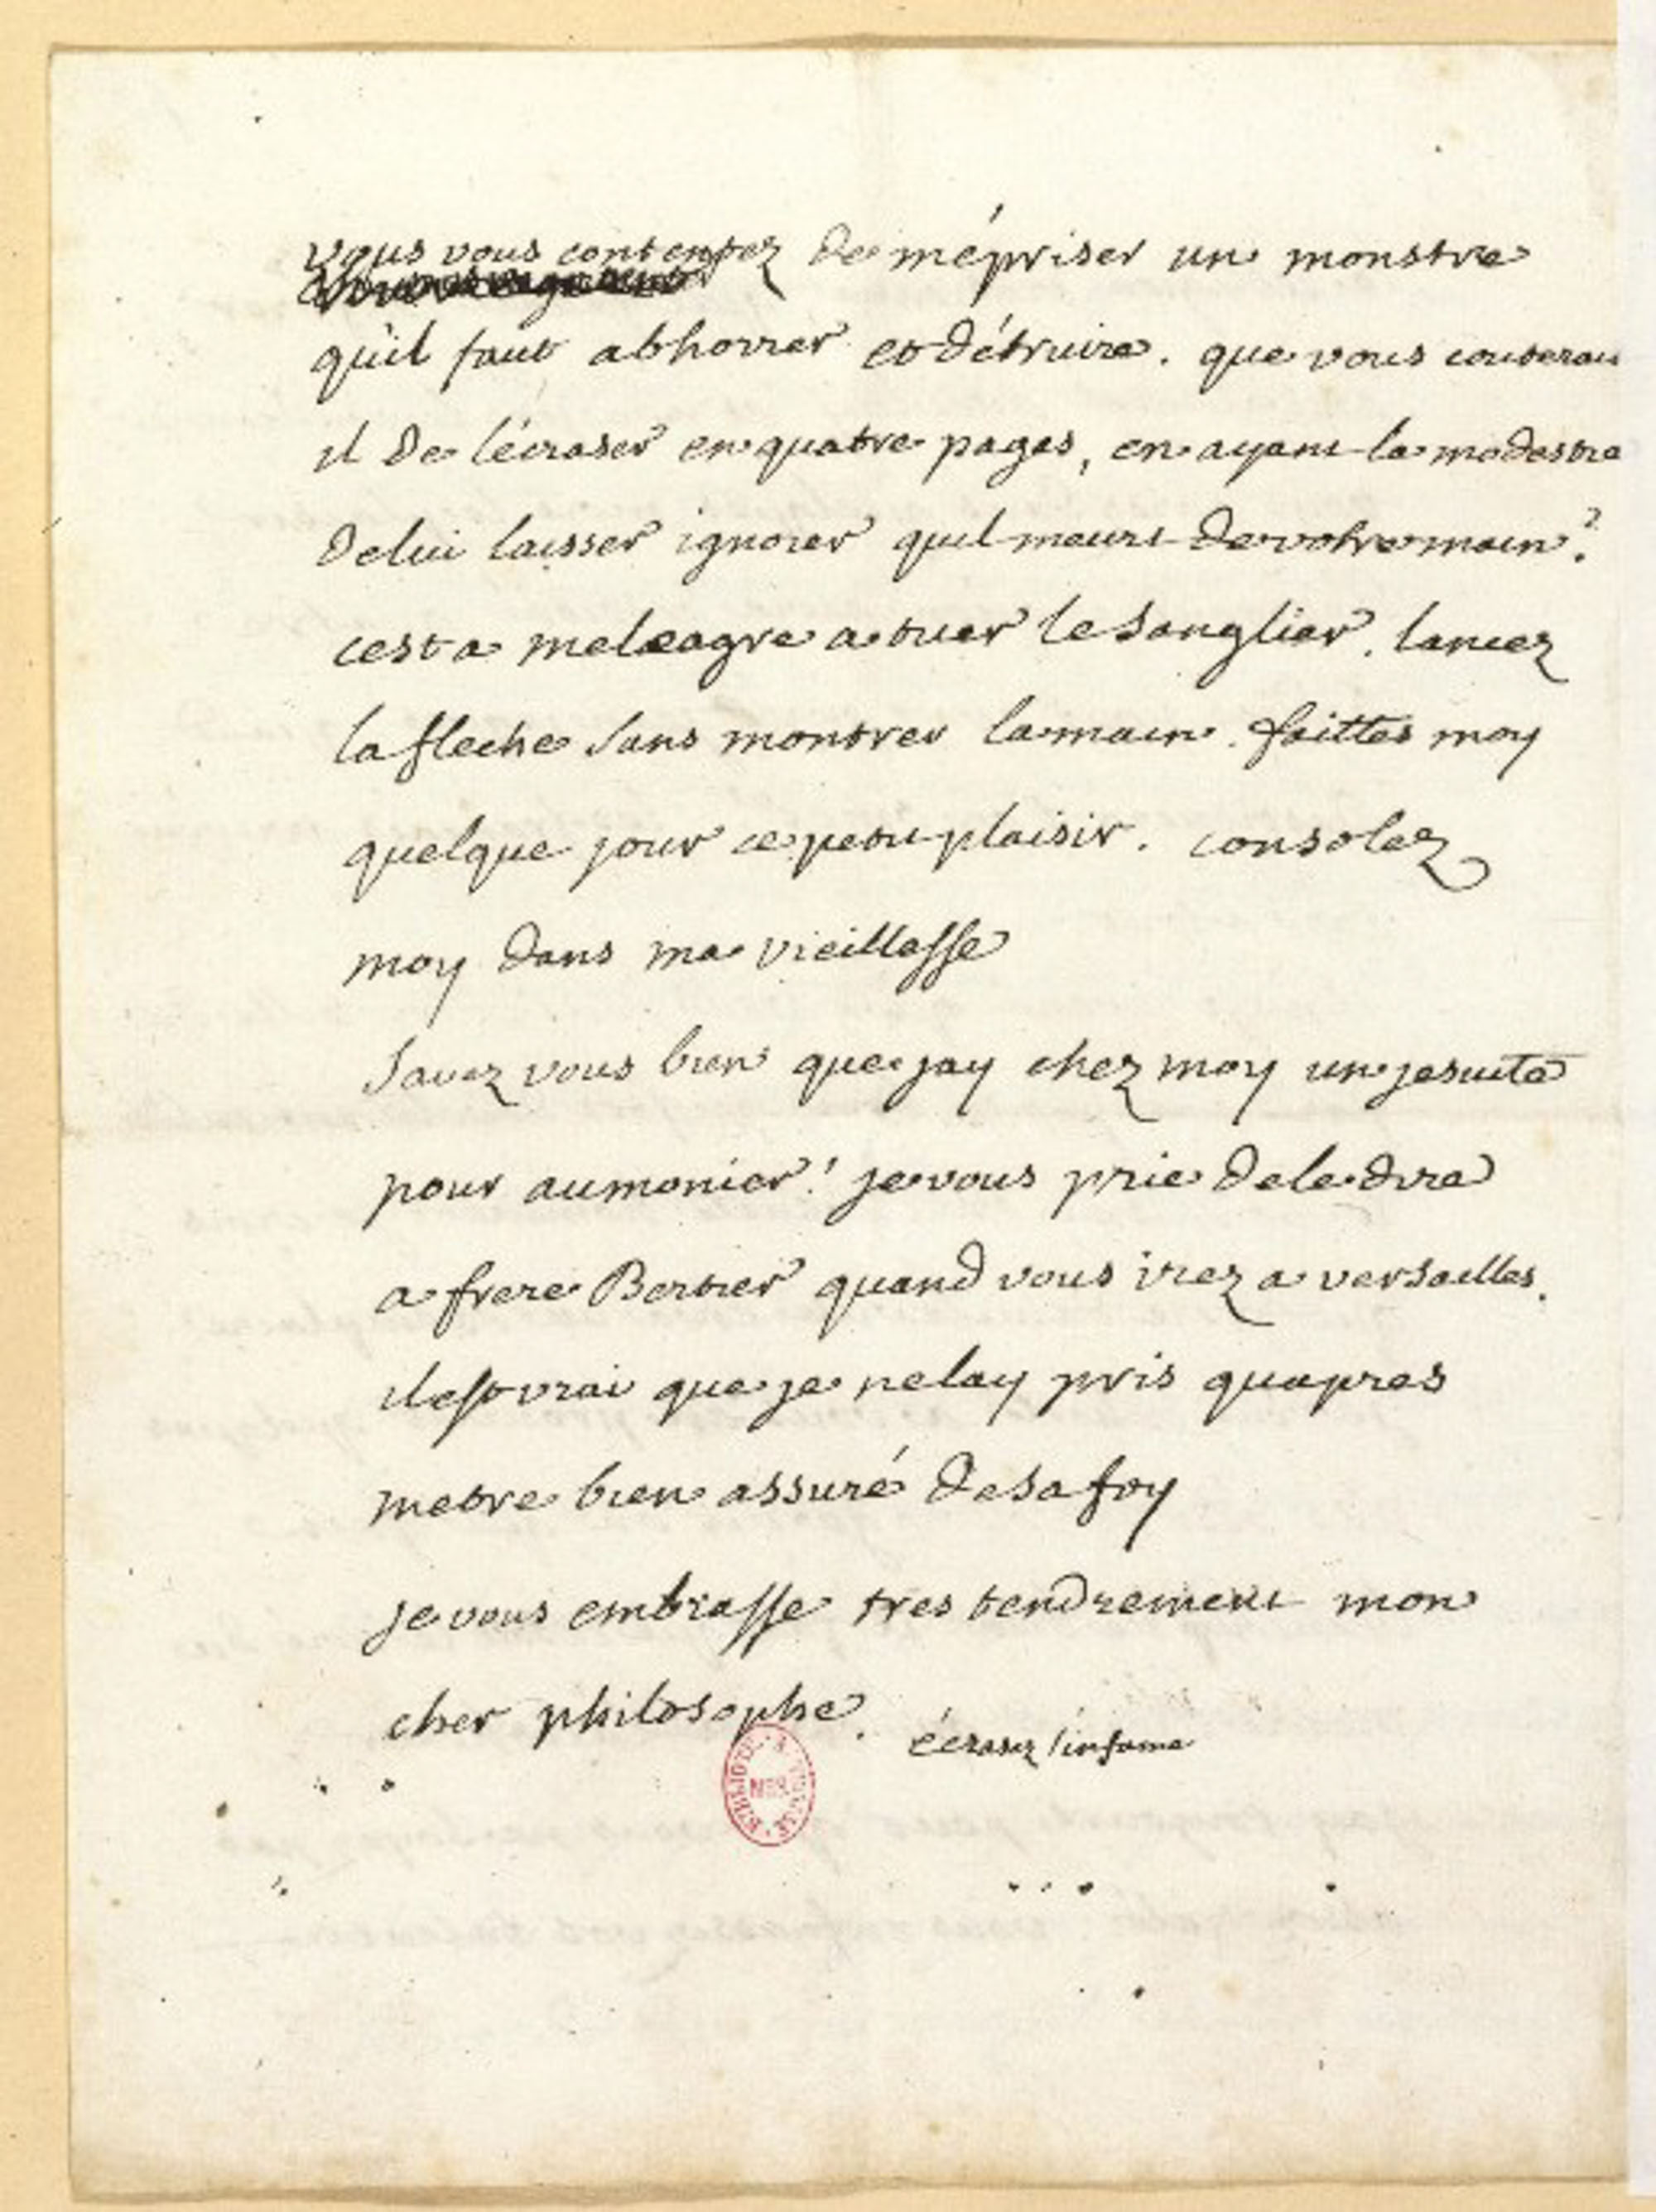 vous vous contentez de mépriser un monstre
qu'il faut abhorrer et détruire. que vous couterait
il de l'écraser en quatre pages, en ayant la modestie
de lui laisser ignorer quil meurt de votre main?
cest a meleagre a tuer le sanglier. lancez
la fleche sans montrer la main. faittes moy
quelque jour ce petit plaisir. consolez
moy dans ma vieillesse
savez vous bien que jay chez moy un jesuite
pour aumonier! je vous prie de le dire
a frere Bertier quand vous irez a versailles.
il est vrai que je ne lay pris quapres
metre bien assuré de sa foy
je vous embrasse tres tendrement mon
cher philosophe. écrasez l'infame